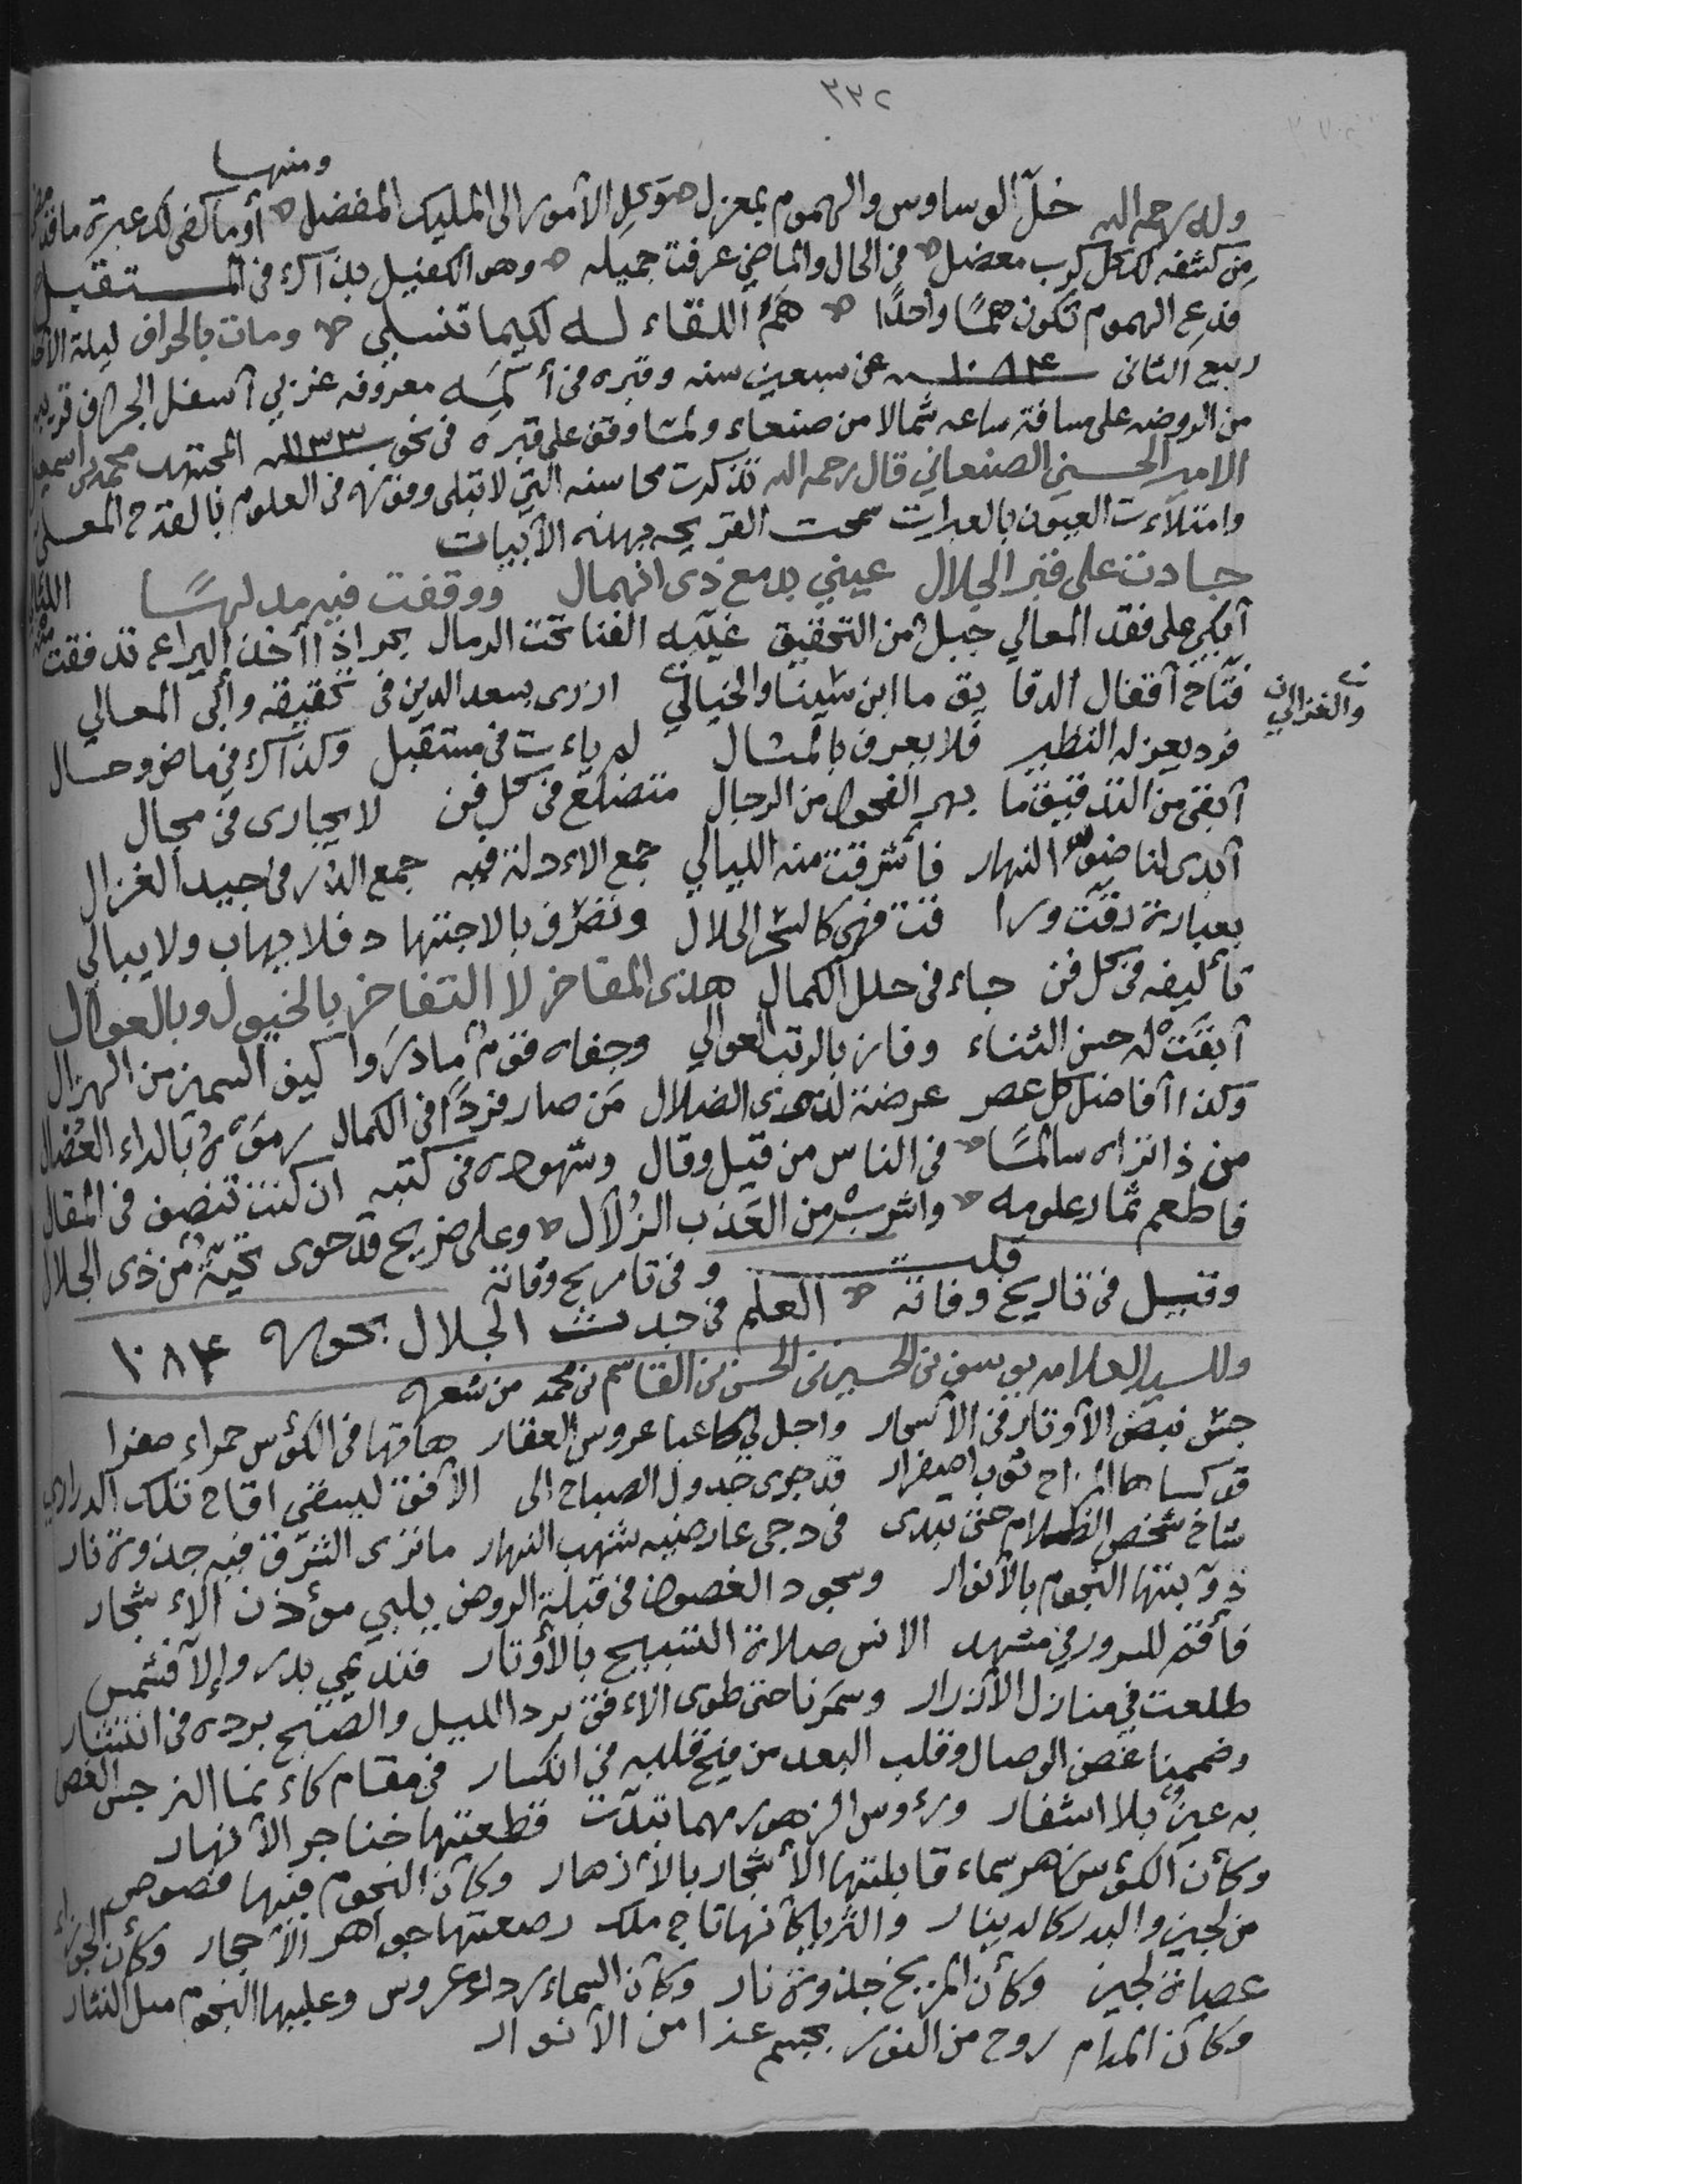 ٣٣٢
ومنها
وله رحمه الله خلّ الوساوس والهموم بمعزل وكِل الأمور الى المليك المفضل أو ما كفى لك عبرة ما قد مضى
من كشفه لك كل كرب معضل في الحال والماضي عرفت جميله وهو الكفيل بذاك في المستقبل
فدع الهموم تكون همًّا واحدًا همُّ اللقاء له لكيما تنسلي ومات بالجراف ليلة الأحد
ربيع الثاني ١٠٨٤سنه عن سبعين سنه وقبره في أكمه معروفه غربي أسفل الجراف قريب
من الروضه على مسافة ساعه شمالا من صنعاء ولما وقف على قبره في نحو ١١٣٣سنه المجتهد محمد بن اسمعيل
الامير الحسني الصنعاني قال رحمه الله تذكرت محاسنه التي لا تبلى وفوزه في العلوم بالقدح المعلى
وامتلأت العيون بالعبرات سمحت القريحه بهذه الأبيات
جادت على قبر الجلال عيني بدمع ذى انهمال ووقفت فيه مدلهًا
أبكي على فقد المعالي جبل من التحقيق غيّبه الفنا تحت الرمال بحر اذا أخذ اليراع تدفقت منه اللئالي
فتّاح أقفال الدقا يق ما ابن سينا والخيالي ازرى بسعد الدين في تحقيقه وأبى المعالي
والغزالي
فرد يعز له النظير فلا يعرف بالمثال لم يات في مستقبل وكذاك في ماض وحال
أبقى من التدقيق ما بهر الفحول من الرجال متضلع في كل فن لا يجارى في مجال
أبدى لنا ضوء النهار فأشرقت منه الليالي جمع الادلة فيه جمع الدر في جيد الغزال
بعبارة دقت ورا قت فهي كالسحر الحلال وتصرف بالاجتها د فلا يهاب ولا يبالي
تأليفه في كل فن جاء في حلل الكمال هذى المفاخر لا التفاخر بالخيول وبالعوال
أبقت له حسن الثناء وفاز بالرتب العوالي وجفاه قوم ما دروا كيف السمين من الهزال
وكذا أفاضل كل عصر عرضة لذوى الضلال من صار فردًا في الكمال رموه بالداء العضال
من ذا تراه سالمًا في الناس من قيل وقال وشهوده في كتبه ان كنت تنصف في المقال
فاطعم ثمار علومه واشرب من العذب الزلال وعلى ضريح قد حوى تحيةٌ من ذى الجلال
قلت وفي تاريخ وفاته
وقيل في تاريخ وفاته العلم في جدث الجلال بحوره ١٠٨٤
وللسيد العلامه يوسف بن الحسين بن الحسن بن القاسم بن محمد من شعره
جس نبض الأوتار في الأسحار واجل لي كاعبا عروس العقار هاتها في الكؤس حمراء صفرا
قد كساها المزاج ثوب اصفرار قد جرى جدول الصباح الى الأفق ليسقي اقاح تلك الدرارى
شاخ شخص الظلام حتى تبدى في دجى عارضيه شهب النهار ما ترى الشرق فيه جذوة نار
ذوّبتها النجوم بالأنوار وسجود الغصون في قبلة الروض يلبي مؤذن الاشجار
فأقم للسرور في مشهد الانس صلاة التسبيح بالأوتار فنديمي بدر وإلا فشمس
طلعت في منازل الأزرار وسمرنا حتى طوى الافق برد الليل والصبح برده في انتشار
وضممنا غصن الوصال وقلب البعد من فتح قلبه في انكسار في مقام كانما النرجس الغض
به عينٌ بلا اشفار ورءوس الزهور مهما تبدّت قطعتها خناجر الأنهار
وكأن الكؤس زهر سماء قابلتها الأشجار بالأزهار وكأن النجوم فيها فصوص
من لجين والبدر كالدينار والثريا كأنها تاج ملك رصعتها جواهر الأحجار وكأن الجوزاء
عصابة لجين وكأن المريخ جذوة نار وكأن السماء رداء عروس وعليها النجوم مثل النثار
وكأن المدام روح من النور بجسم غدا من الأنوار